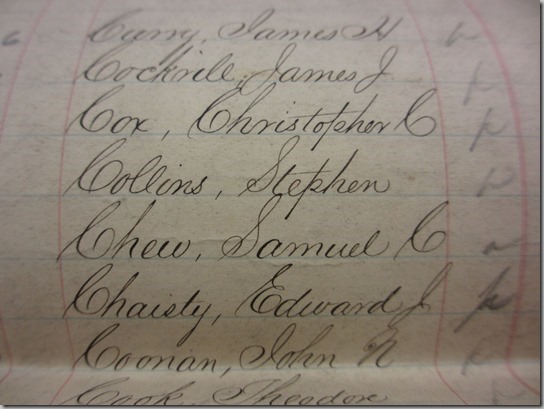 Curry, James H
Cockrill, James J
Cox, Christopher C
Collins, Stephen
Chew, Samuel C
Chaisty, Edward J
Coonan, John N
Cook, Theodore